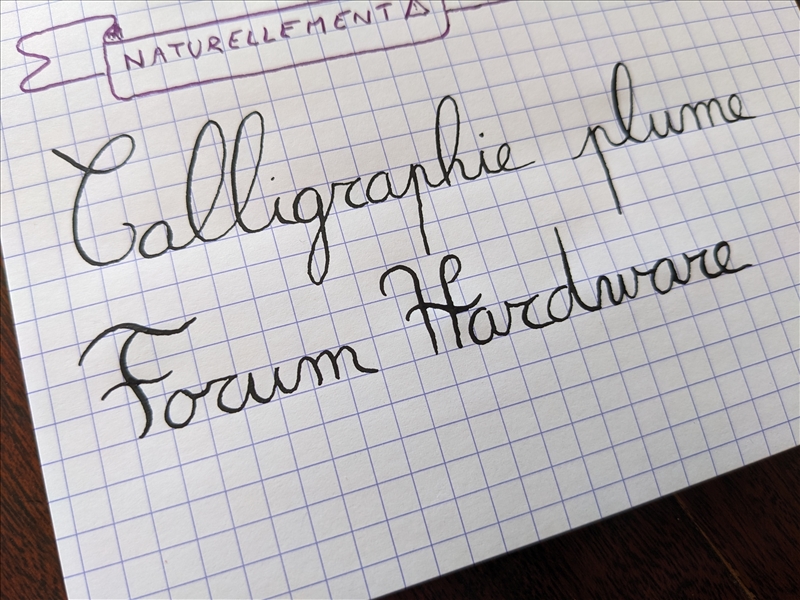 NATURELLEMENT
Calligraphie plume
Forum Hardware